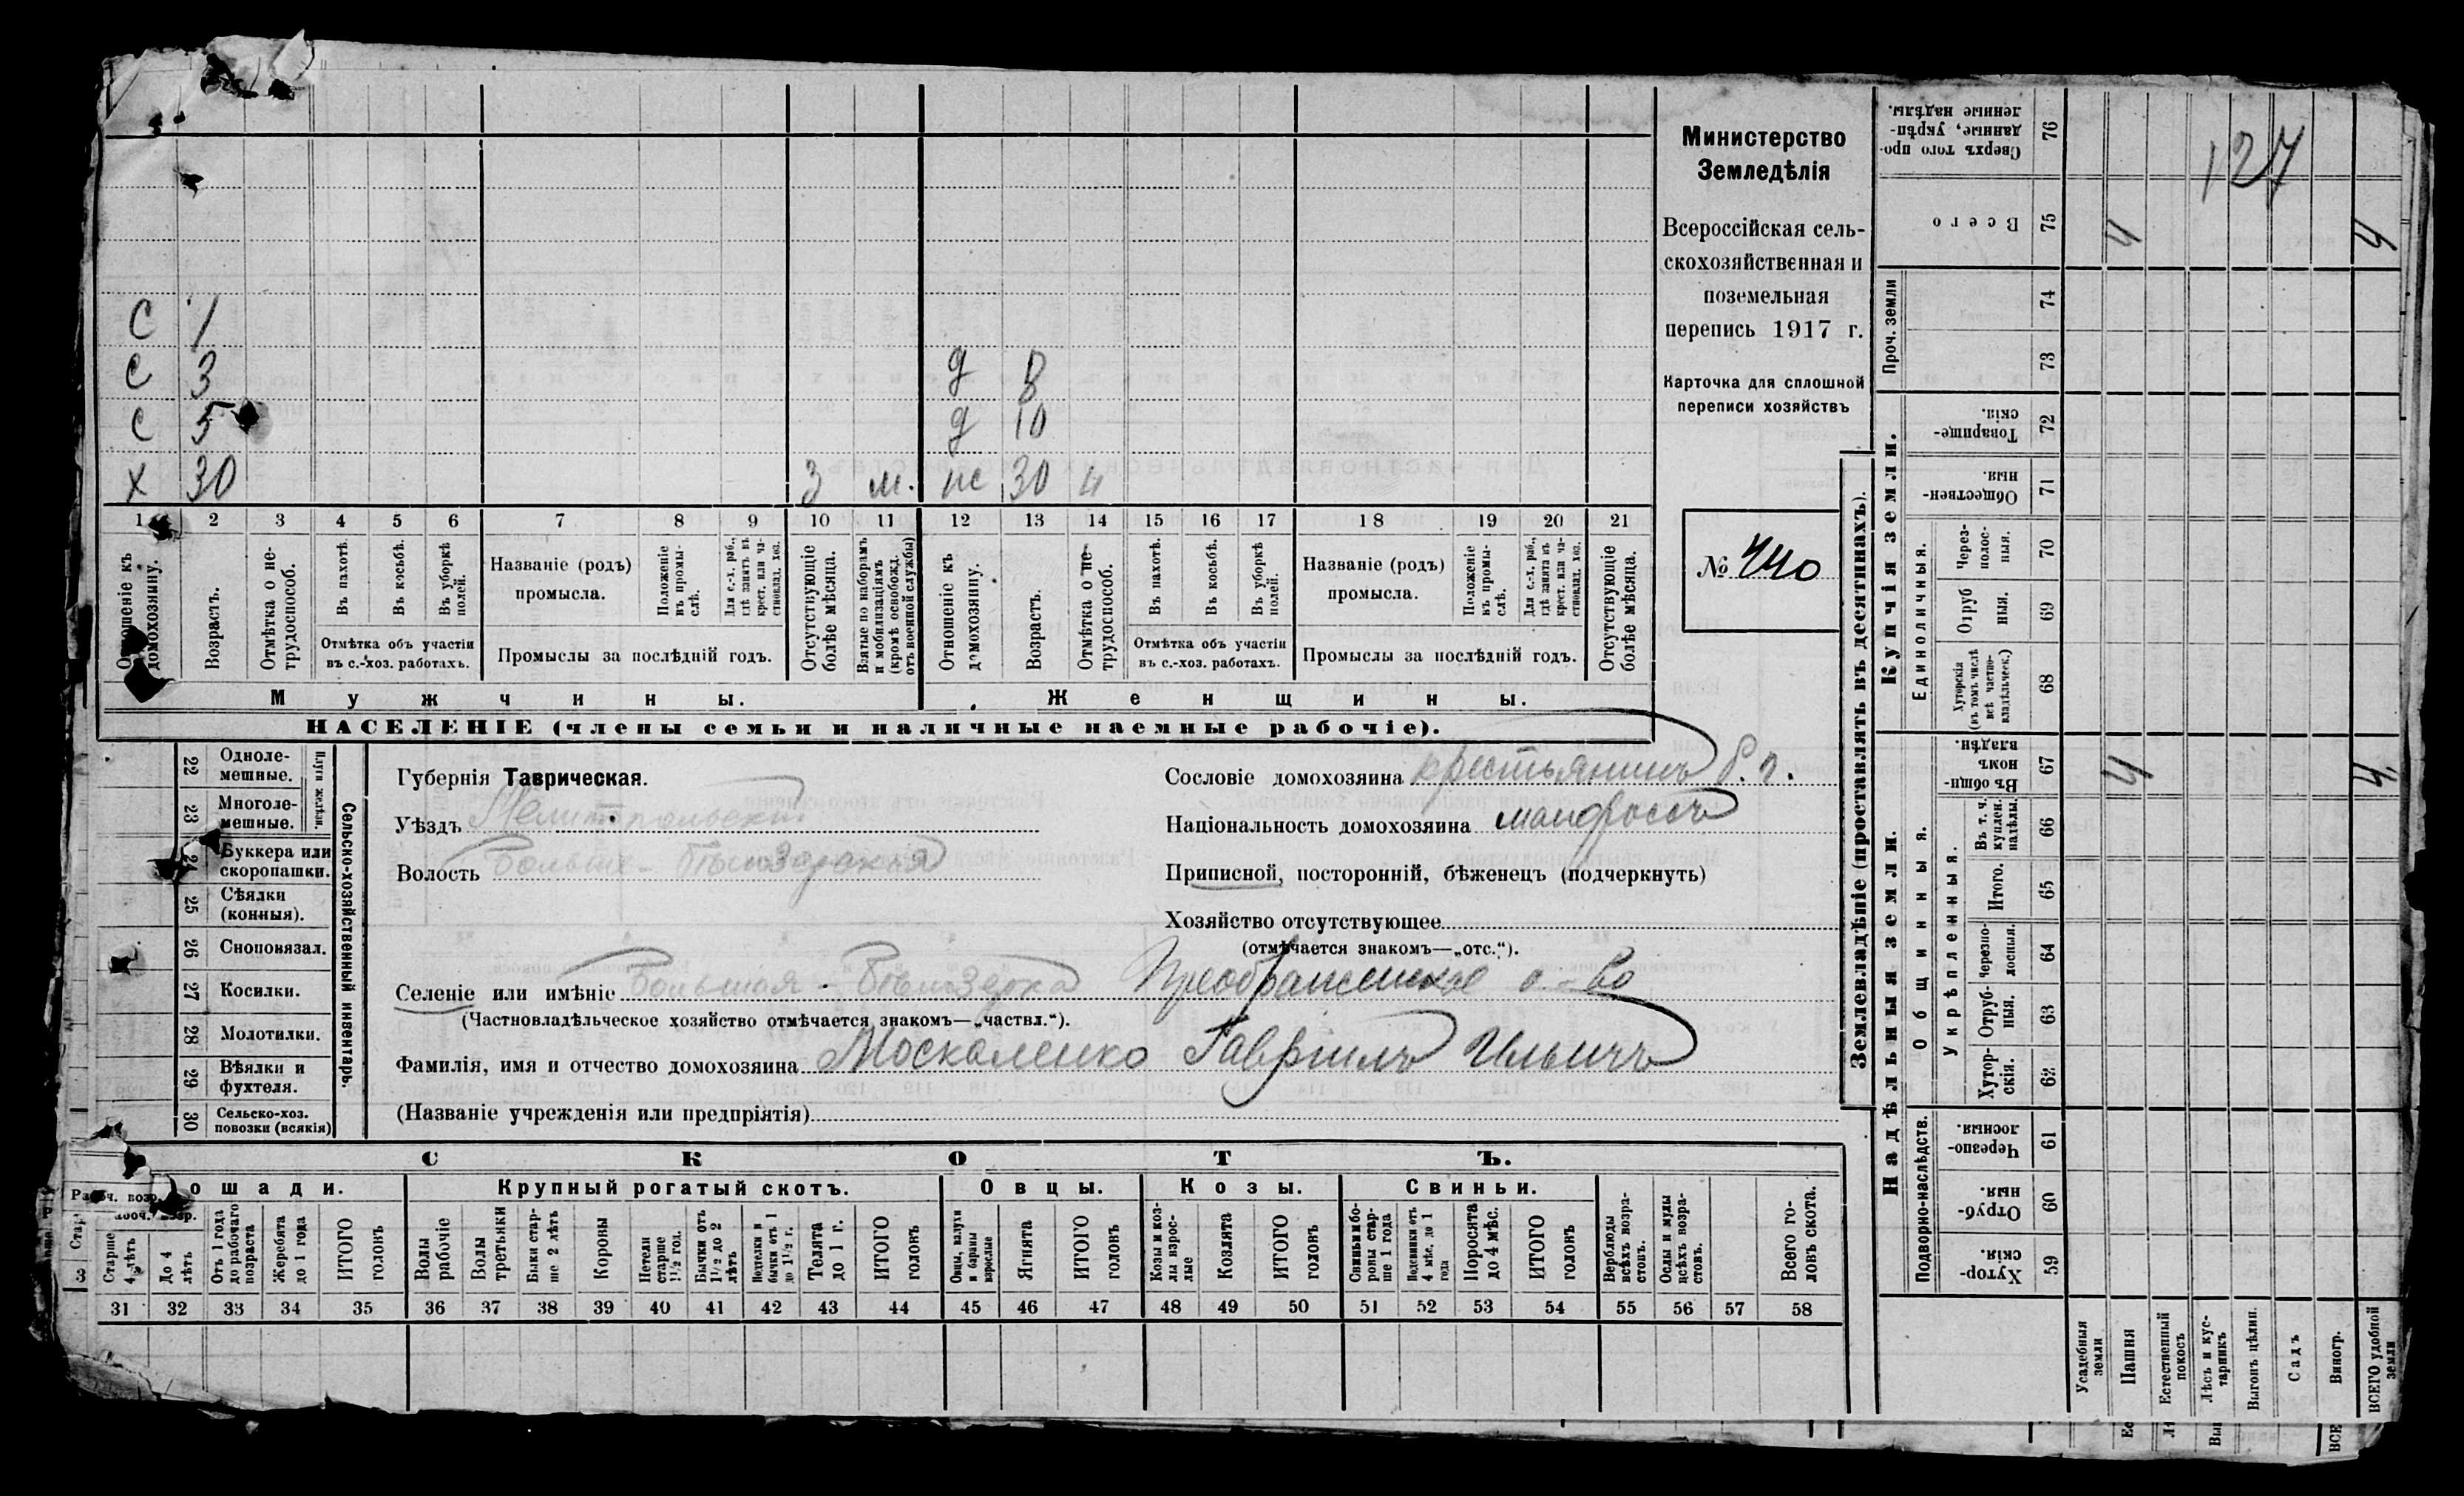 127
Министерство
Земледѣлія
Всероссійская сель-
скохозяйственная и
поземельная
перепись 1917 г.
Карточка для сплошной
переписи хозяйствъ
№ 440
С 1
С 3 д 8
С 5 д 10
х 30 3 м. же 30 ч
1 2 3 4 5 6 7 8 9 10 11 12 13 14 15 16 17 18 19 20 21
Отношеніе къ домохозяину.
Возрастъ.
Отмѣтка о не-трудоспособ.
Въ пахотѣ.
Въ косьбѣ.
Въ уборкѣ полей.
Отмѣтка объ участіи
въ с.-хоз. работахъ.
Названіе (родъ)
промысла.
Положеніе въ промы-слѣ.
Для с.-х. раб., гдѣ занятъ въ крест. или ча-стновлад. хоз.
Промыслы за послѣдній годъ.
Отсутствующіе болѣе мѣсяца.
Взятые по наборамъ и мобилизаціямъ (кромѣ освобожд. отъ военной службы)
Отношеніе къ домохозяину.
Возрастъ.
Отмѣтка о не-трудоспособ.
Въ пахотѣ.
Въ косьбѣ.
Въ уборкѣ полей.
Отмѣтка объ участіи
въ с.-хоз. работахъ.
Названіе (родъ)
промысла.
Положеніе въ промы-слѣ.
Для с.-х. раб., гдѣ занята въ крест. или ча-стновлад. хоз.
Промыслы за послѣдній годъ.
Отсутствующіе болѣе мѣсяца.
Мужчины. Женщины.
НАСЕЛЕНІЕ (члены семьи и наличные наемные рабочіе).
Сельско-хозяйственный инвентарь.
Плуги желѣзн.
22 Одноле-мешные.
23 Многоле-мешные.
24 Буккера или скоропашки.
25 Сѣялки (конныя).
26 Сноповязал.
27 Косилки.
28 Молотилки.
29 Вѣялки и фухтеля.
30 Сельско-хоз. повозки (всякія)
Губернія Таврическая.
Уѣздъ Мелитопольскій
Волость Больше-Бѣлозерская
Сословіе домохозяина крестьянинъ б. г.
Національность домохозяина малороссъ
Приписной, посторонній, бѣженецъ (подчеркнуть)
Хозяйство отсутствующее
(отмѣчается знакомъ—„отс.“).
Селеніе или имѣніе Большая-Бѣлозерка Преображенское о-во
(Частновладѣльческое хозяйство отмѣчается знакомъ—„частвл.“).
Фамилія, имя и отчество домохозяина Москаленко Гавріилъ Ильичъ
(Названіе учрежденія или предпріятія)
СКОТЪ.
Лошади. Крупный рогатый скотъ. Овцы. Козы. Свиньи.
Рабоч. возр.
Старше 4 лѣтъ
До 4 лѣтъ
Отъ 1 года до рабочаго возраста
Жеребята до 1 года
ИТОГО головъ
Волы рабочіе
Волы третьяки
Быки стар-ше 2 лѣтъ
Коровы
Нетели старше 1½ год.
Бычки отъ 1½ до 2 лѣтъ
Подтелки и бычки отъ 1 до 1½ г.
Телята до 1 г.
ИТОГО головъ
Овцы, валухи и бараны взрослые
Ягнята
ИТОГО головъ
Козы и коз-лы взрос-лые
Козлята
ИТОГО головъ
Свиньи и бо-ровы стар-ше 1 года
Подсвинки отъ 4 мѣс. до 1 года
Поросята до 4 мѣс.
ИТОГО головъ
Верблюды всѣхъ возра-стовъ.
Ослы и мулы всѣхъ возра-стовъ.
Всего го-ловъ скота.
31 32 33 34 35 36 37 38 39 40 41 42 43 44 45 46 47 48 49 50 51 52 53 54 55 56 57 58
Землевладѣніе (проставлять въ десятинахъ).
Купчія земли.
Надѣльныя земли.
Сверхъ того про-данные, укрѣп-ленные надѣлы. 76
Всего 75 4 4
Проч. земли 74
73
Товарище-скія. 72
Обществен-ныя 71
Единоличныя.
Через-полос-ныя. 70
Отруб-ныя. 69
Хуторскія (въ томъ числѣ всѣ частно-владѣльческ.) 68
Общинныя.
Въ общи-нномъ владѣн. 67 4 4
Укрѣпленныя.
Въ т. ч. куплен. надѣлы. 66
Итого. 65
Черезпо-лосныя. 64
Отруб-ныя. 63
Хутор-скія. 62
Подворно-наслѣдств.
Черезпо-лосныя 61
Отруб-ныя. 60
Хутор-скія 59
Усадебныя земли
Пашня
Естественный покосъ
Лѣсъ и кус-тарникъ
Выгонъ цѣлин.
Садъ
Виногр.
ВСЕГО удобной земли